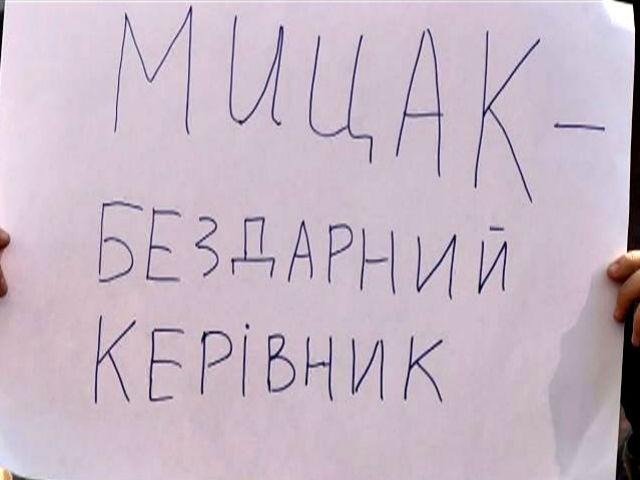 МИЦАК –
БЕЗДАРНИЙ
КЕРІВНИК